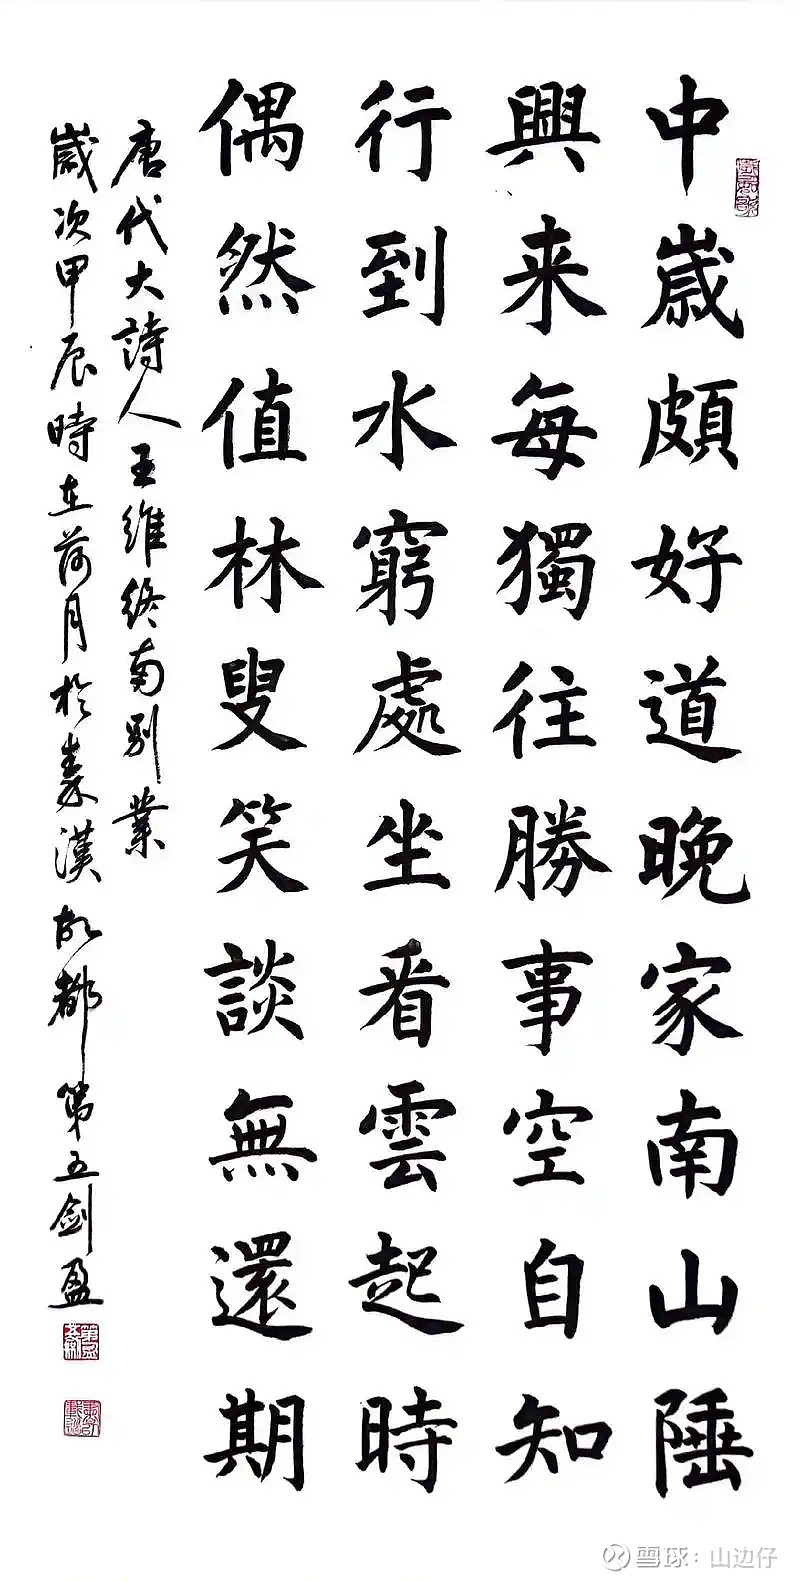 中歲頗好道晚家南山陲
興来每獨往勝事空自知
行到水窮處坐看雲起時
偶然值林叟笑談無還期
唐代大詩人王維終南別業
歲次甲辰時在荷月於秦漢故都第五剑盈
雪球：山边仔